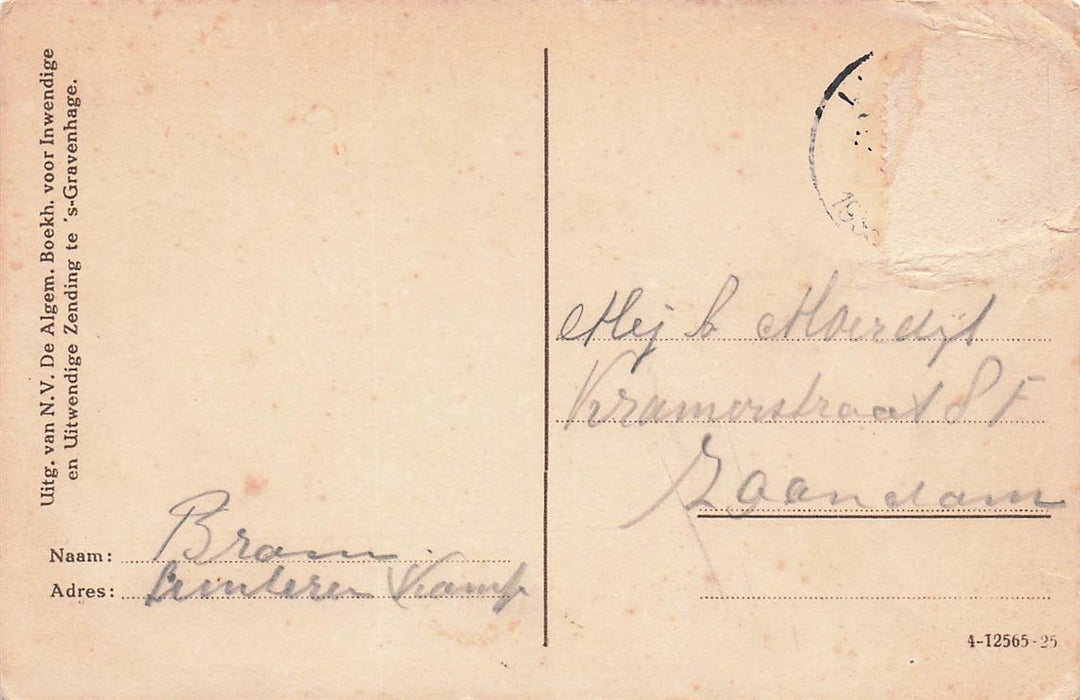 Uitg. van N.V. De Algem. Boekh. voor Inwendige
en Uitwendige Zending te 's-Gravenhage.
Naam: Bram.
Adres: Lunteren Kamp
Mej b Moerdijk
Kramerstraat 8F
Zaandam
4-12565-25